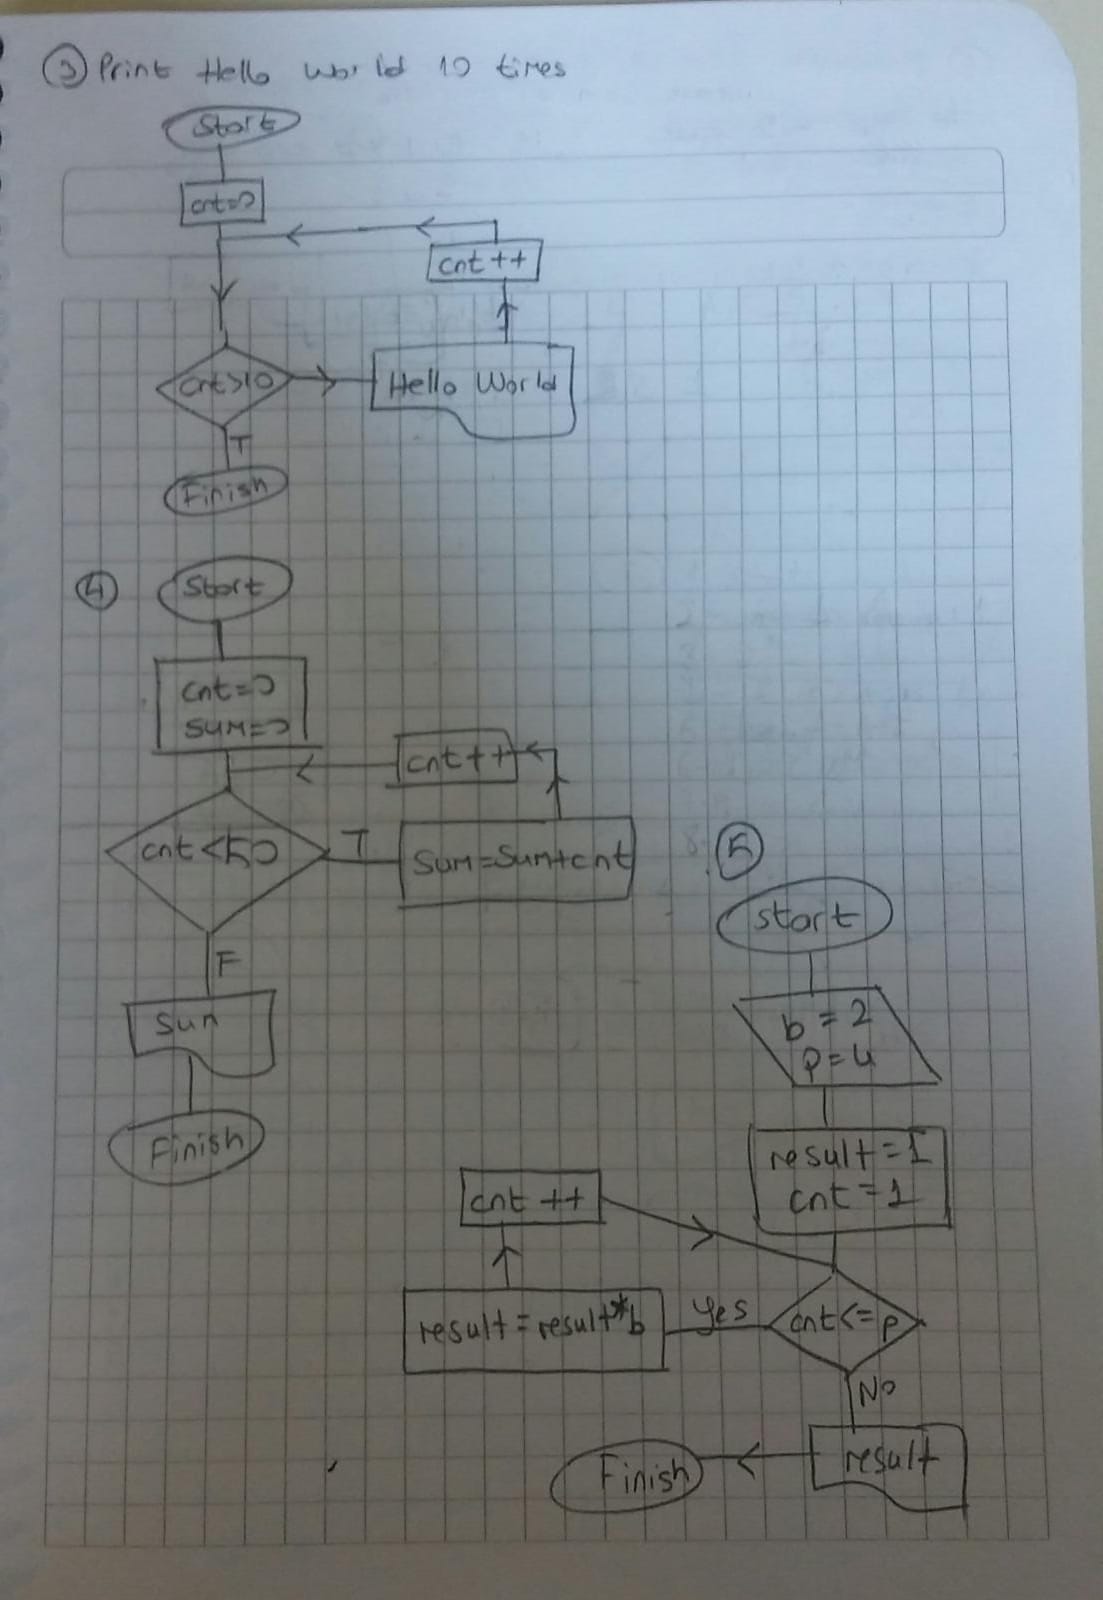 ③ Print Hello World 10 times
Start
cnt=0
cnt++
cnt>10
Hello World
T
Finish
④
Start
cnt=0
sum=0
cnt++
cnt<50
T
Sum=Sum+cnt
F
Sum
Finish
⑤
start
b=2
p=4
result=1
cnt=1
cnt ++
cnt<=p
Yes
result=result*b
No
result
Finish